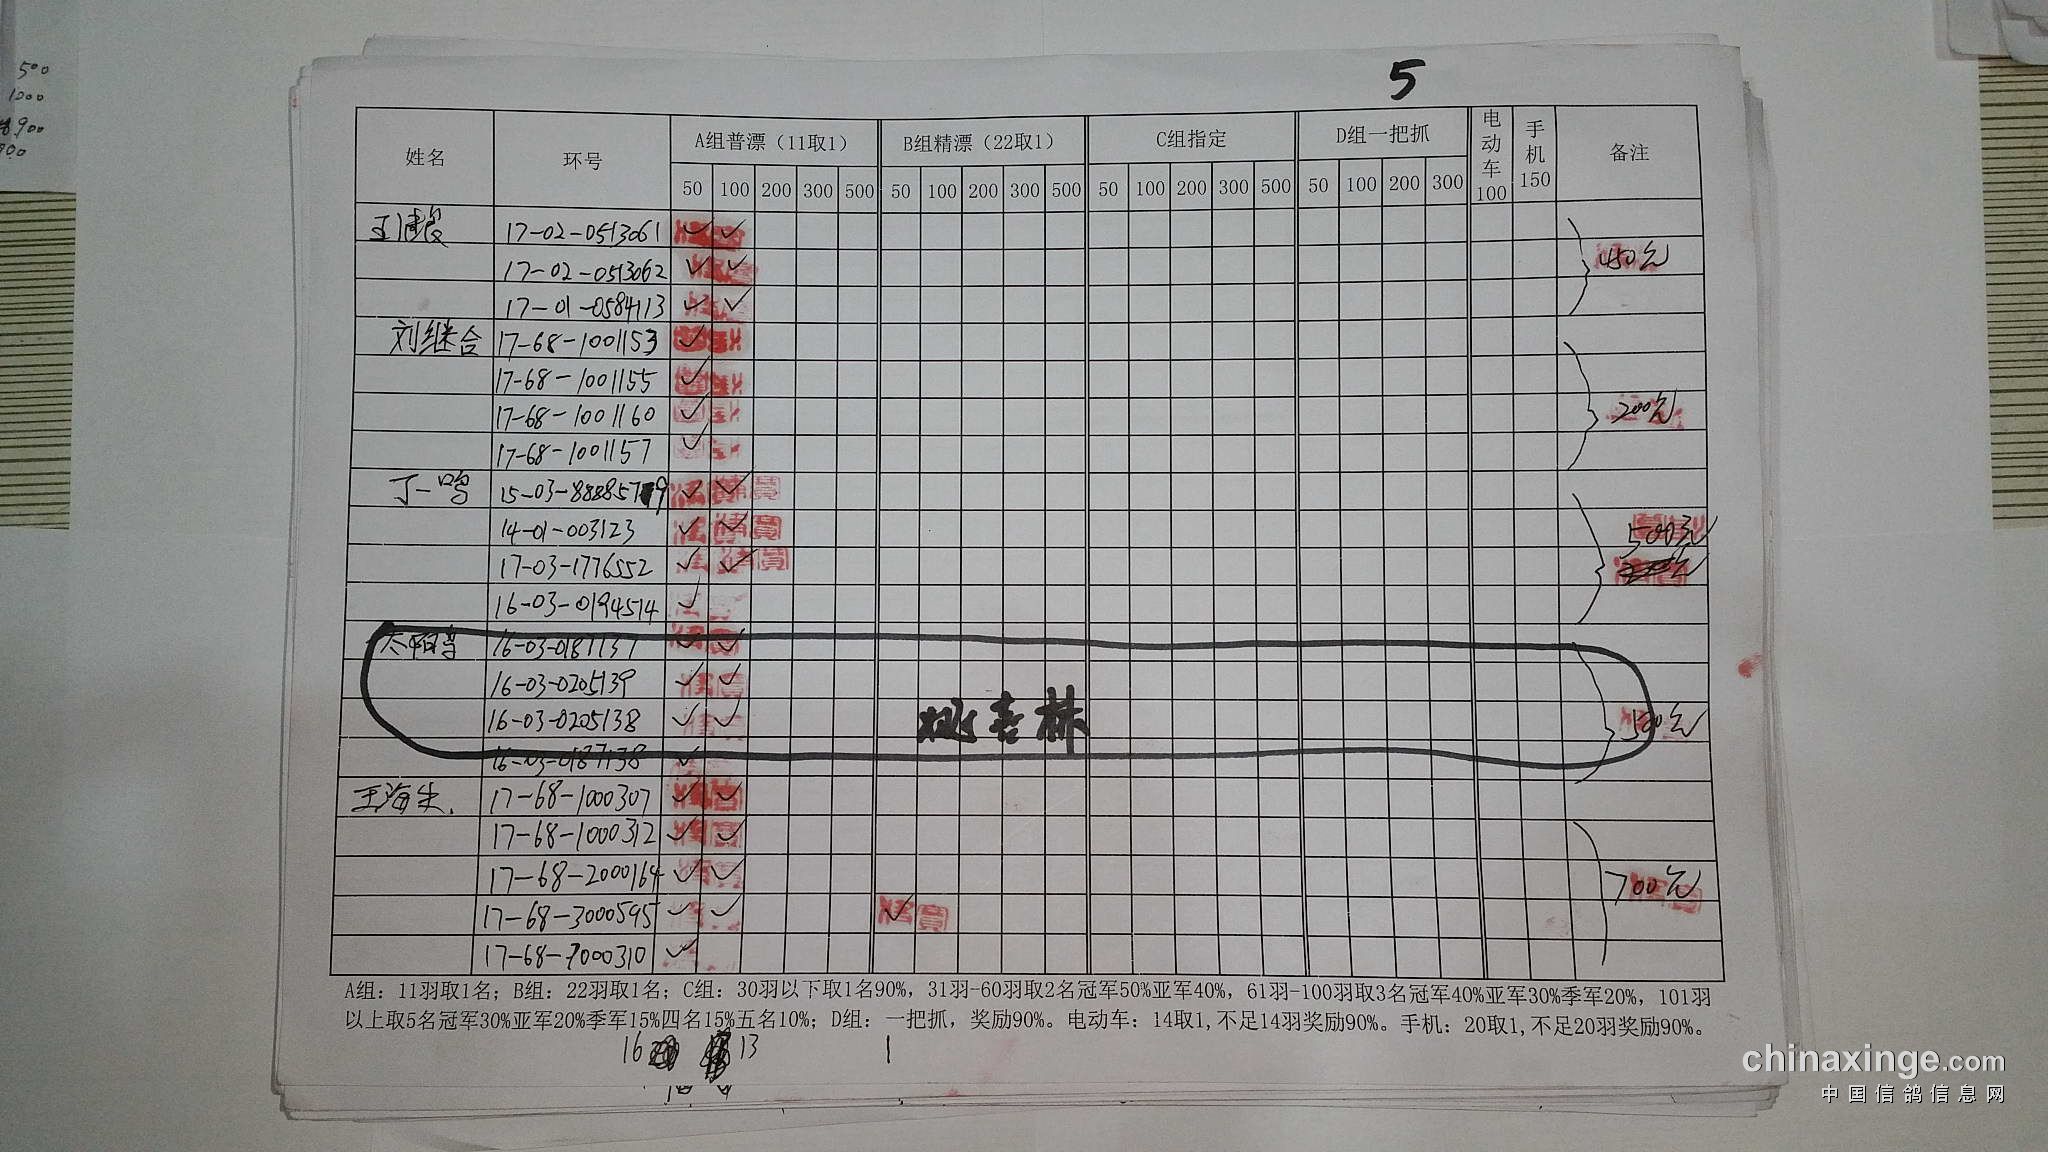 500
1200
900
5
姓名 环号 A组普漂（11取1） B组精漂（22取1） C组指定 D组一把抓 电动车100 手机150 备注
50 100 200 300 500 50 100 200 300 500 50 100 200 300 500 50 100 200 300
17-02-0513061 ✓ ✓
17-02-0513062 ✓ ✓ 450元
17-01-0584113 ✓ ✓
刘继合 17-68-1001153 ✓
17-68-1001155 ✓
17-68-1001160 ✓ 200元
17-68-1001157 ✓
丁一鸣 ✓ ✓
14-01-003123 ✓ ✓ 500元
17-03-1776552 ✓ ✓
16-03-0194514 ✓
16-03-0187137 ✓ ✓
16-03-0205139 ✓ ✓
16-03-0205138 ✓ ✓ 姚吉林 500元
16-03-0187138 ✓
17-68-1000307 ✓ ✓
17-68-1000312 ✓ ✓
17-68-2000164 ✓ ✓ 700元
17-68-3000595 ✓ ✓ ✓
17-68-7000310 ✓
A组：11羽取1名；B组：22羽取1名；C组：30羽以下取1名90%，31羽-60羽取2名冠军50%亚军40%，61羽-100羽取3名冠军40%亚军30%季军20%，101羽
以上取5名冠军30%亚军20%季军15%四名15%五名10%；D组：一把抓，奖励90%。电动车：14取1,不足14羽奖励90%。手机：20取1,不足20羽奖励90%。
16 13 1
chinaxinge.com
中国信鸽信息网